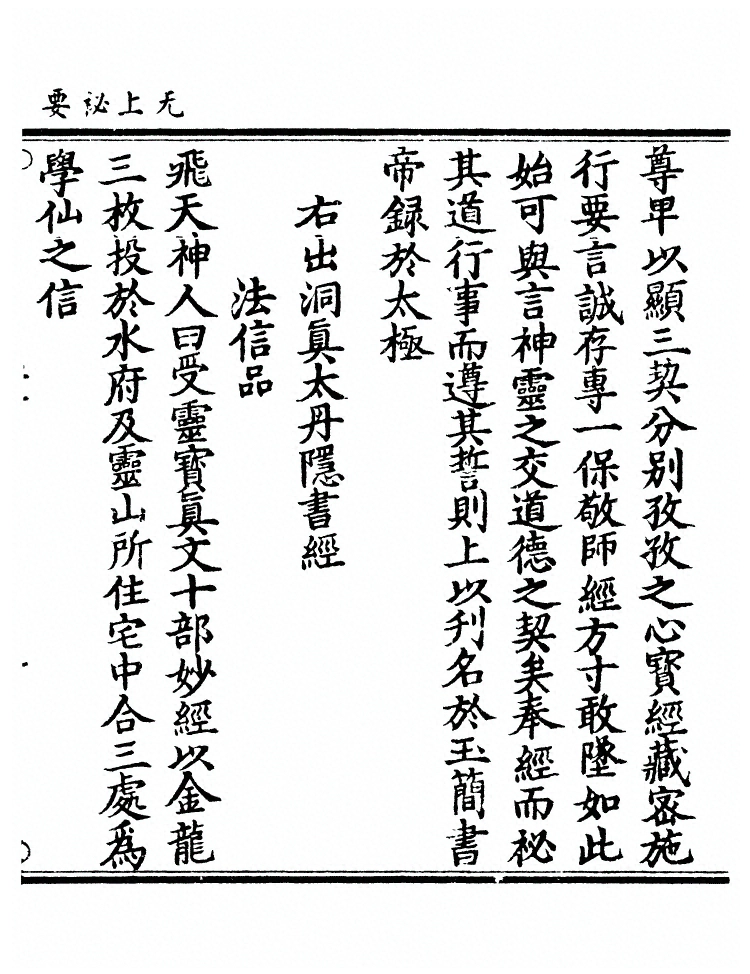 无上祕要
尊卑以顯三契分別孜孜之心寳經藏密施
行要言誠存專一保敬師經方寸敢墜如此
始可與言神靈之交道德之契矣奉經而祕
其道行事而遵其誓則上以刋名於玉簡書
帝録於太極
右出洞眞太丹隱書經
法信品
飛天神人曰受靈寳眞文十部妙經以金龍
三枚投於水府及靈山所住宅中合三處爲
學仙之信